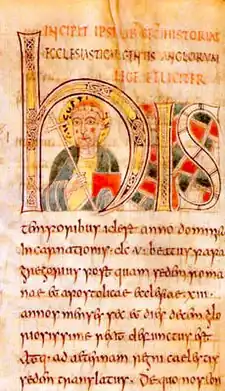 INCIPIT IPSI LIB SECŪ HISTORIAE
ECCLESIASTICAE GENTIS ANGLORUM
LEGE FELICITER
hIS
temporibus id est anno dominicae
incarnationis dcv beatus papa
gregorius postquam sedem roma
nae et apostolicae ecclesiae xiii
annos menses sex et dies decem glo
riosissime rexit defunctus est
atq ad aeternam regni caelestis
sedem translatus de quo nos con